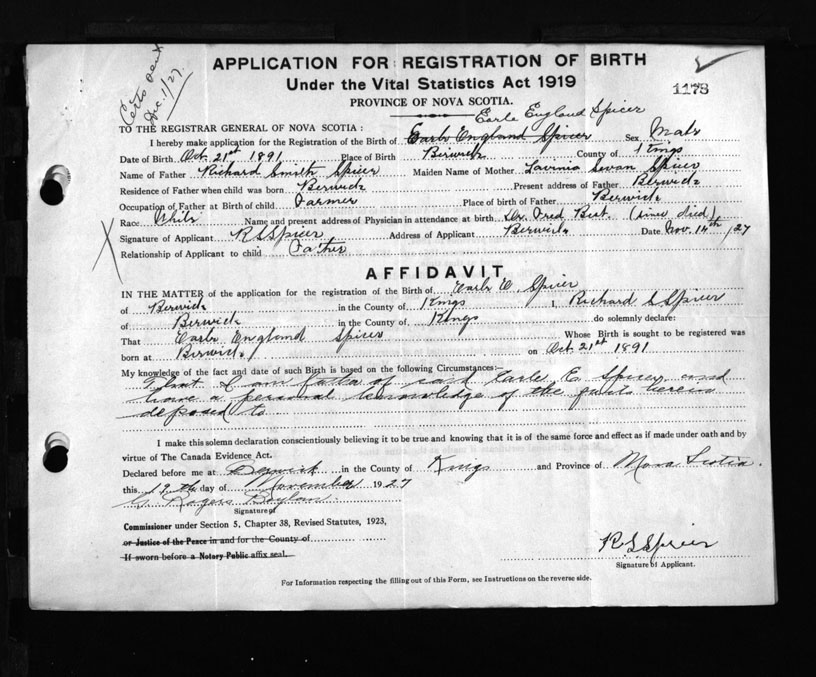 Certs sent
Dec. 1/27.
APPLICATION FOR REGISTRATION OF BIRTH
Under the Vital Statistics Act 1919
PROVINCE OF NOVA SCOTIA.
1178
Earle England Spicer
TO THE REGISTRAR GENERAL OF NOVA SCOTIA :
I hereby make application for the Registration of the Birth of Earle England Spicer Sex Male
Date of Birth Oct. 21st 1891 Place of Birth Berwick County of Kings
Name of Father Richard Smith Spicer Maiden Name of Mother Spicer
Residence of Father when child was born Berwick Present address of Father Berwick
Occupation of Father at Birth of child Farmer Place of birth of Father Berwick
Race White Name and present address of Physician in attendance at birth Dr. Fred (since died)
Signature of Applicant R S Spicer Address of Applicant Berwick Date Nov. 14th /27
Relationship of Applicant to child Father
AFFIDAVIT
IN THE MATTER of the application for the registration of the Birth of Earle E. Spicer
of Berwick in the County of Kings I, Richard S Spicer
of Berwick in the County of Kings do solemnly declare:
That Earle England Spicer Whose Birth is sought to be registered was
born at Berwick on Oct 21st 1891
My knowledge of the fact and date of such Birth is based on the following Circumstances:—
That I am father of said Earle E. Spicer and
have a personal knowledge of the facts herein
deposed to
I make this solemn declaration conscientiously believing it to be true and knowing that it is of the same force and effect as if made under oath and by
virtue of The Canada Evidence Act.
Declared before me at Berwick in the County of Kings and Province of Nova Scotia.
this day of November 1927
G. Rogers
Signature of
Commissioner under Section 5, Chapter 38, Revised Statutes, 1923,
or Justice of the Peace in and for the County of
If sworn before a Notary Public affix seal.
R S Spicer
Signature of Applicant.
For Information respecting the filling out of this Form, see Instructions on the reverse side.